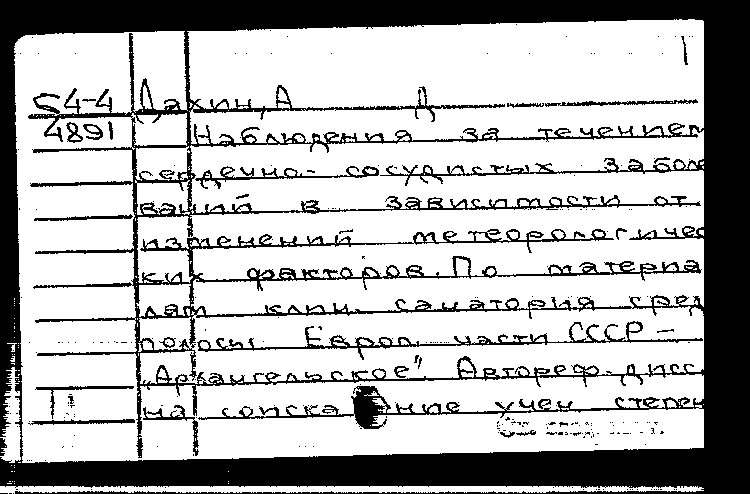 54-4 Дахин, А Д
4891 Наблюдения за течением
сердечно-сосудистых заболе
ваний в зависимости от
изменений метеорологичес
ких факторов. По материа
лам клин. санатория сред
полосы Европ. части СССР –
„Архангельское" Автореф. дисс.
на соиска ние учен степен
См. след. карт.